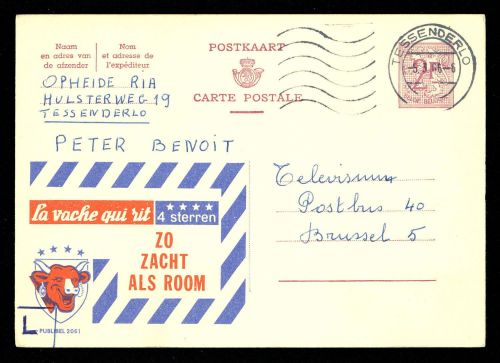 Naam en adres van de afzender
Nom et adresse de l'expéditeur
POSTKAART
CARTE POSTALE
TESSENDERLO
OPHEIDE RIA
HULSTERWEG 19
TESSENDERLO
PETER BENOIT
La vache qui rit
4 sterren
ZO
ZACHT
ALS ROOM
PUBLIBEL 2061
Televisium
Postbus 40
Brussel 5